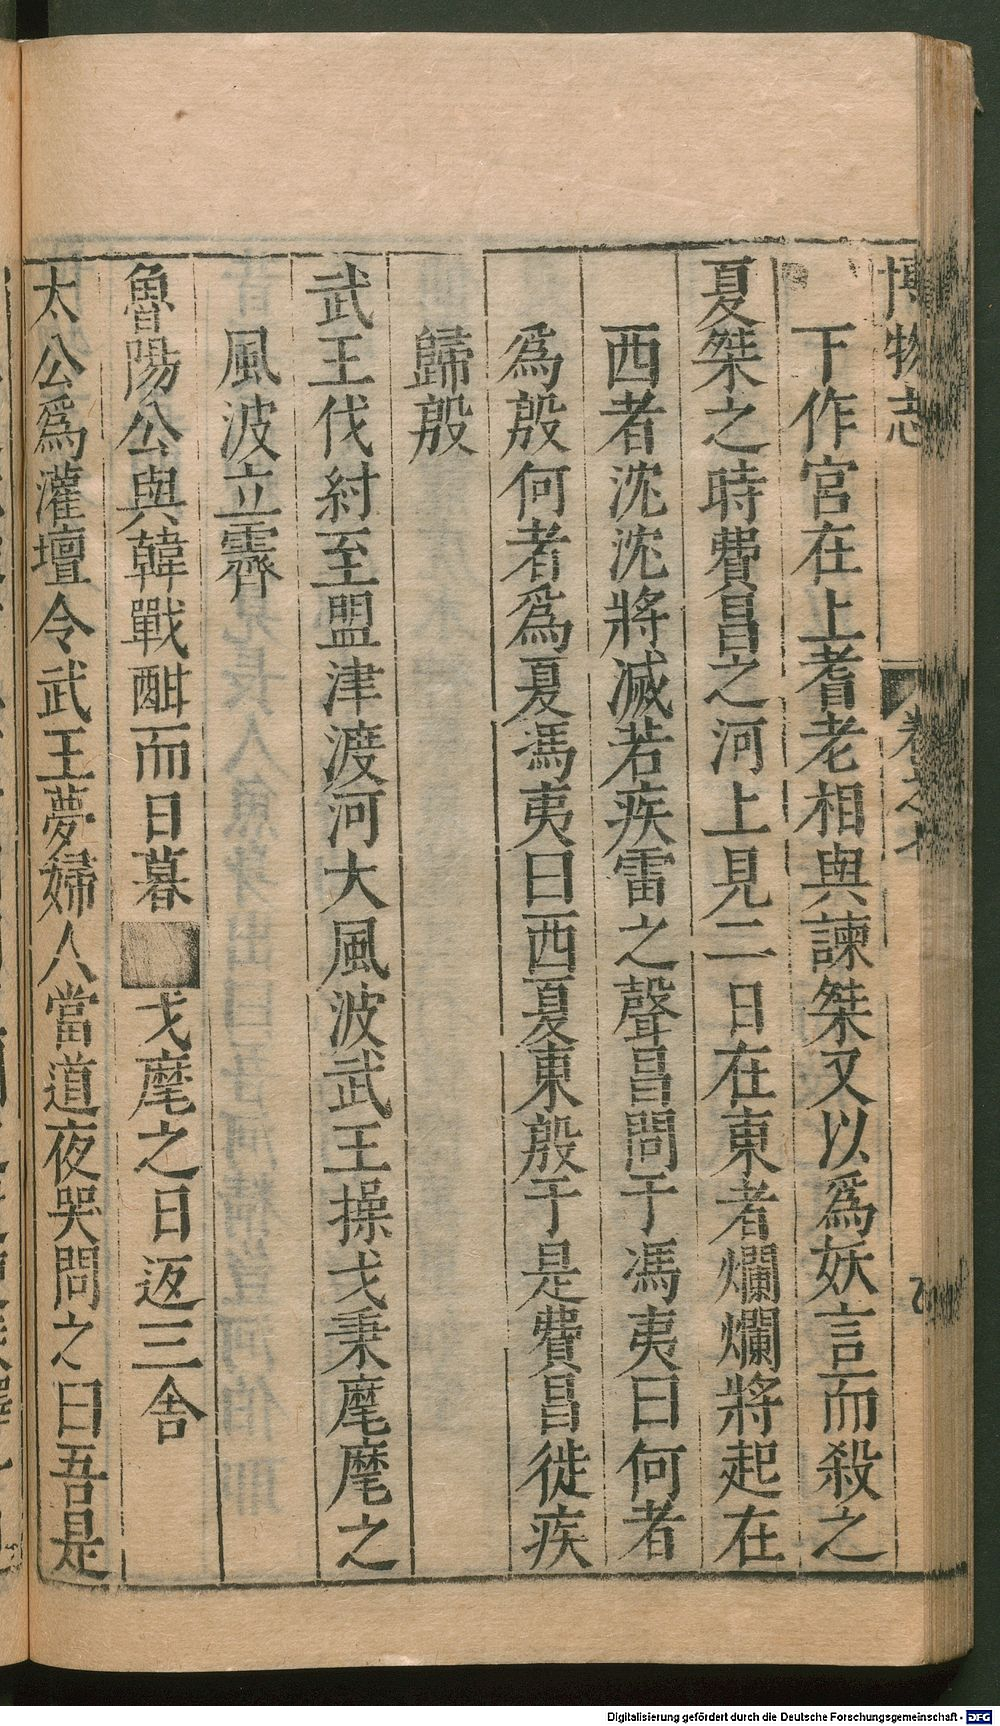 博物志 卷之七
下作宮在上耆老相與諫桀又以爲妖言而殺之
夏桀之時費昌之河上見二日在東者爛爛將起在
西者沈沈將滅若疾雷之聲昌問于馮夷曰何者
爲殷何者爲夏馮夷曰西夏東殷于是費昌徙疾
歸殷
武王伐紂至盟津渡河大風波武王操戈秉麾麾之
風波立霽
魯陽公與韓戰酣而日暮 戈麾之日返三舍
太公爲灌壇令武王夢婦人當道夜哭問之曰吾是
Digitalisierung gefördert durch die Deutsche Forschungsgemeinschaft - DFG